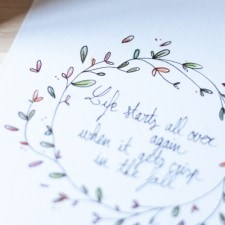 Life starts all over
again
when it gets crisp
in the fall